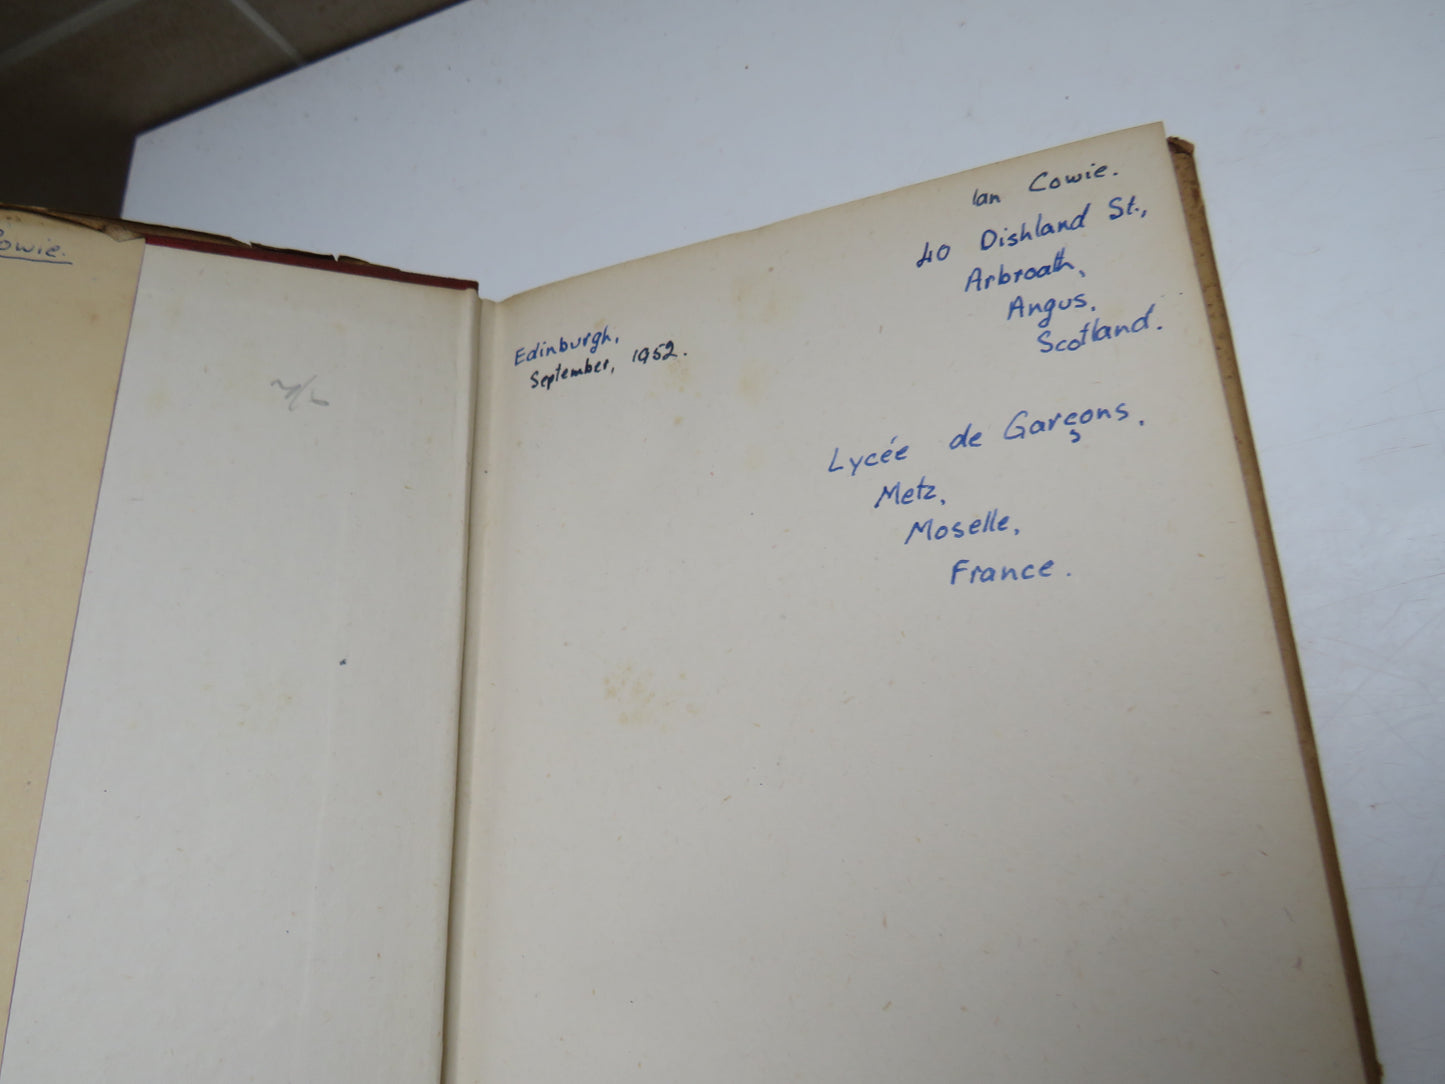 Cowie.
Ian Cowie.
40 Dishland St.,
Arbroath,
Angus,
Scotland.
Edinburgh,
September, 1952.
Lycée de Garçons,
Metz,
Moselle,
France.